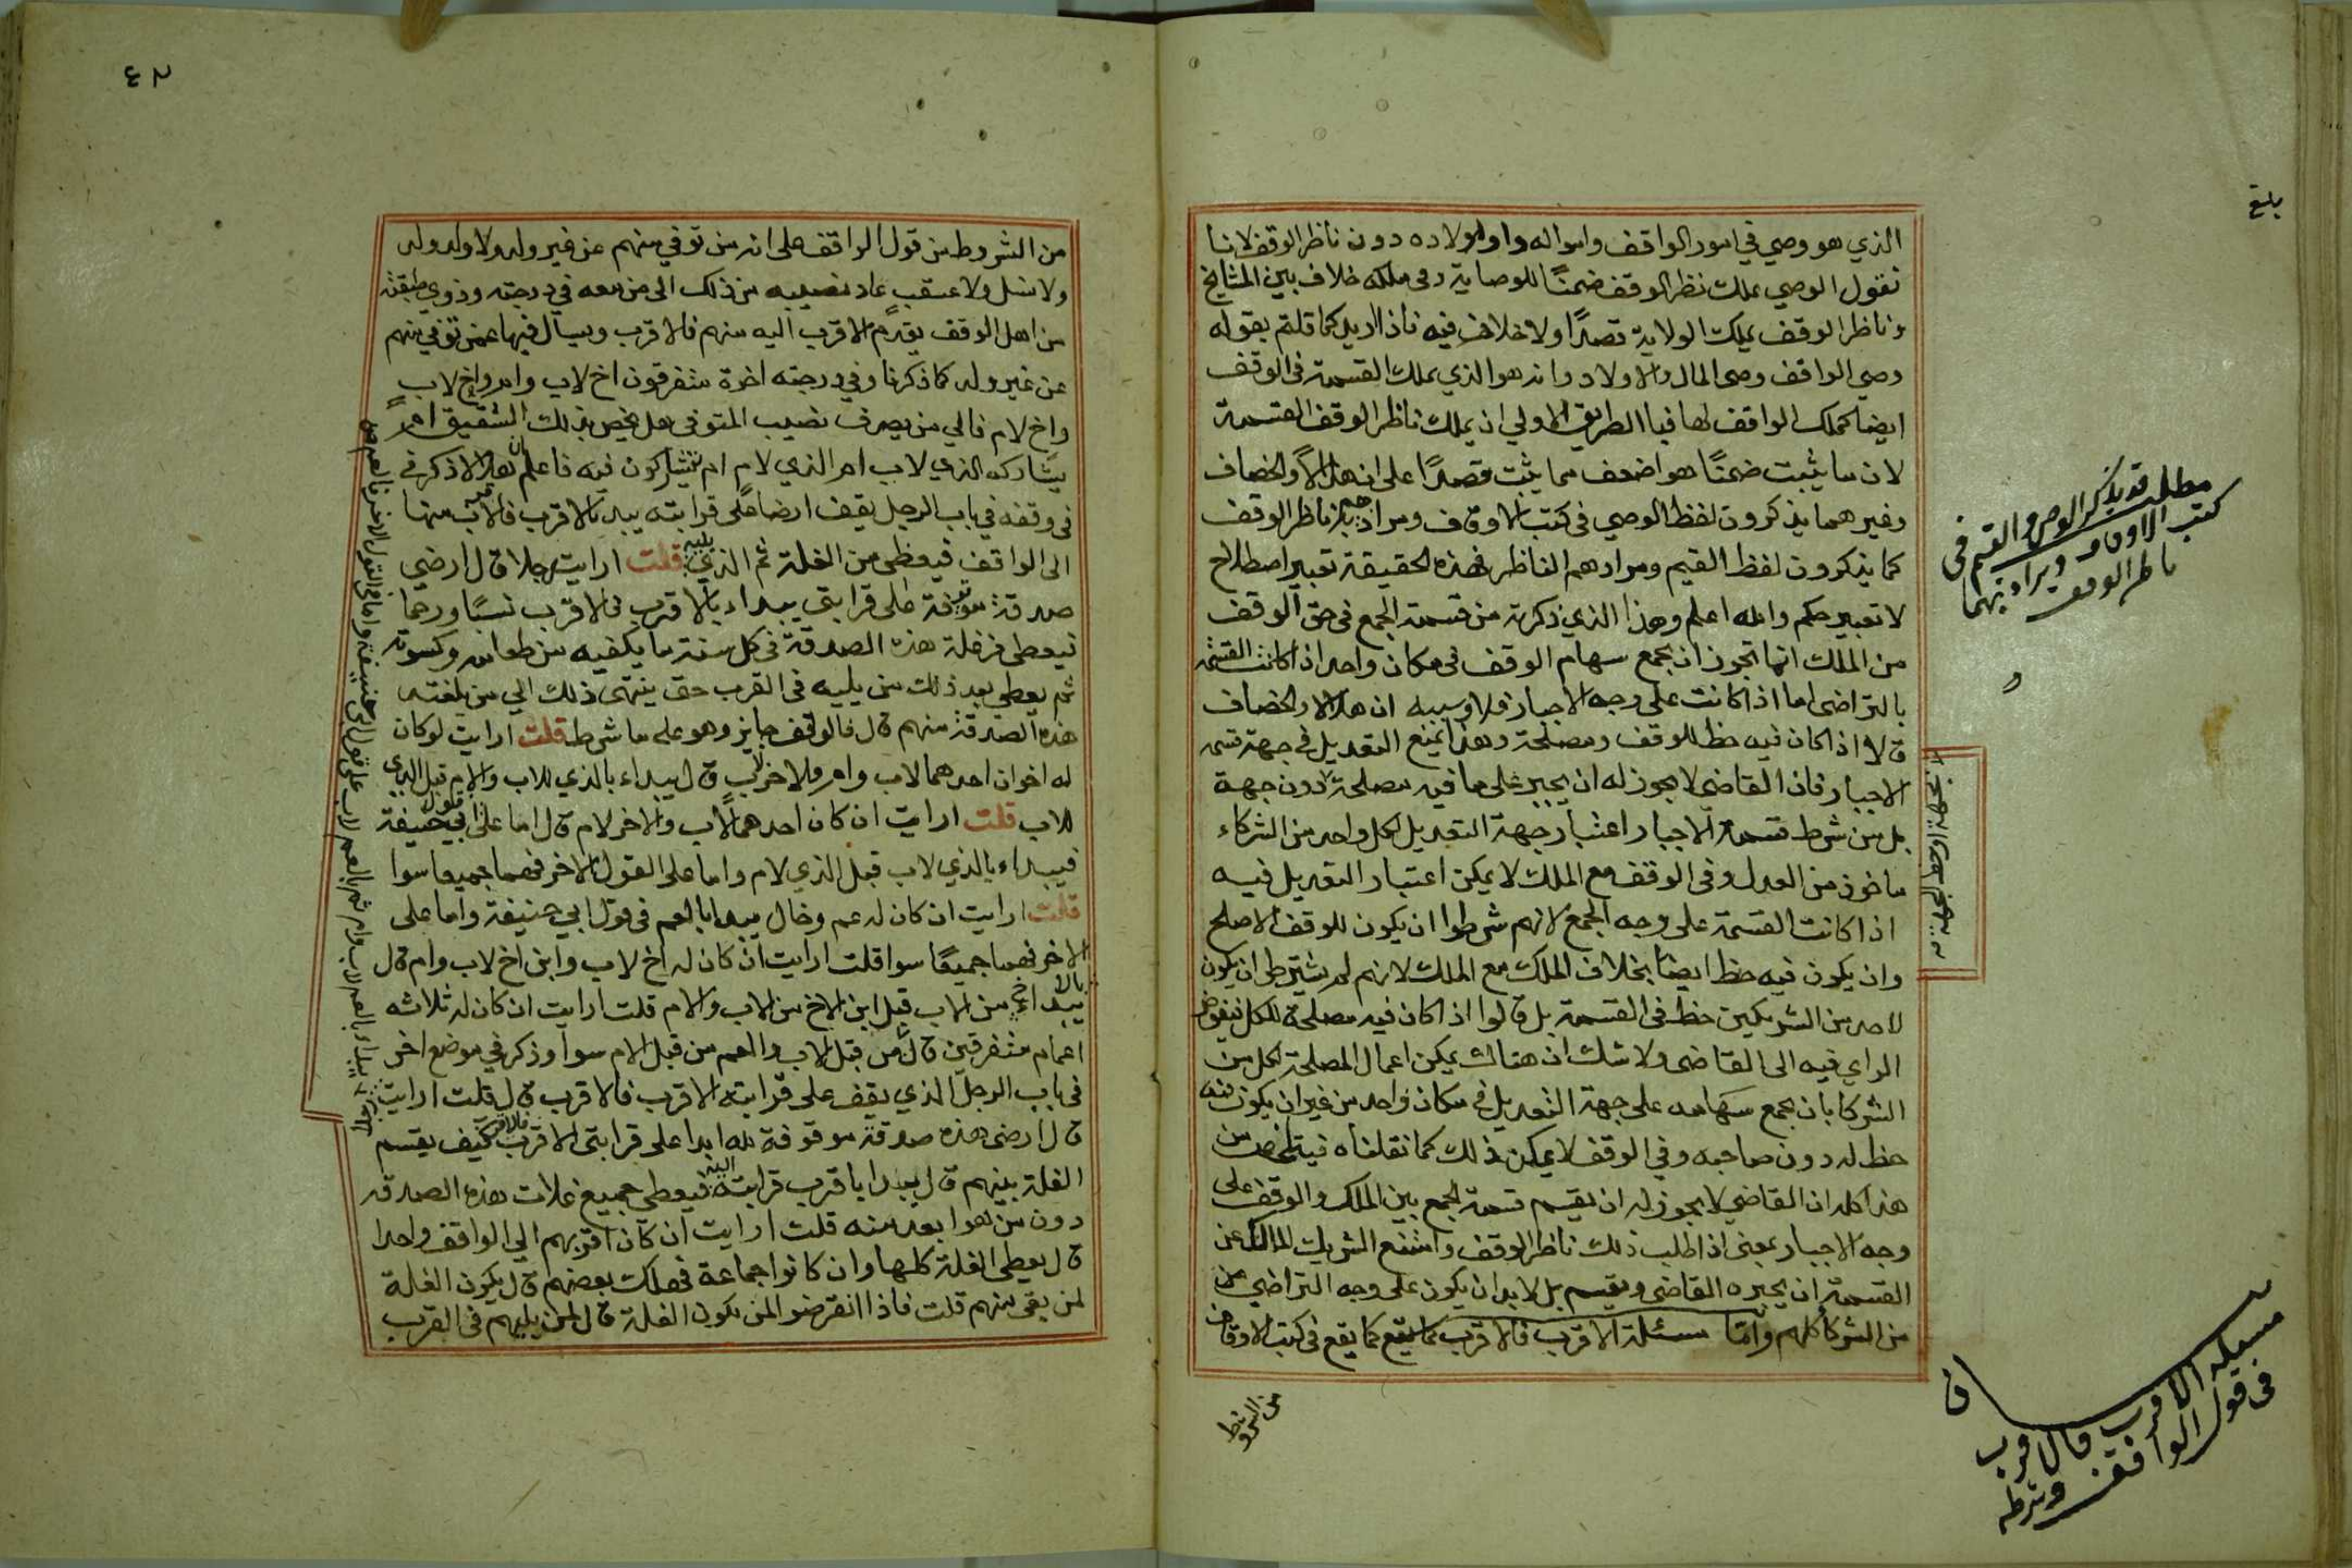 بلغ
الذي هو وصي في امور الواقف وامواله واولاده دون ناظر الوقف لانا
نقول الوصي يملك نظر الوقف ضمنًا للوصاية وفي ملكه خلاف بين المشايخ
وناظر الوقف يملك الولاية قصدًا ولا خلاف فيه فاذا اريد كما قلتم بقوله
وصي الواقف وصي المال والاولاد وانه هو الذي يملك القسمة في الوقف
ايضا كملك الواقف لها فبا الطريق الاولي ان يملك ناظر الوقف القسمة
لان ما يثبت ضمنًا هو اضعف مما يثبت قصدًا على ان هلالاً والخصاف
وغيرهما يذكرون لفظ الوصي في كتب الاوقاف ومرادهم به ناظر الوقف
كما يذكرون لفظ القيم ومرادهم الناظر فهذه الحقيقة تعبير اصطلاح
لا تعبير حكم والله اعلم وهذا الذي ذكرته من قسمة الجمع في حق الوقف
من الملك انها تجوز ان يجمع سهام الوقف في مكان واحد اذا كانت القسمة
بالتراضي اما اذا كانت على وجه الاجبار فلا وسببه ان هلالا والخصاف
قالا اذا كان فيه حظ للوقف ومصلحة وهذا يمنع التعديل في جهة قسمة
الاجبار فان القاضي لا يجوز له ان يجبر على ما فيه مصلحة دون جهة
بل من شرط قسمة الاجبار اعتبار جهة التعديل لكل واحد من الشركاء
ماخوذ من العدل وفي الوقف مع الملك لا يمكن اعتبار التعديل فيه
اذا كانت القسمة على وجه الجمع لانهم شرطوا ان يكون للوقف الاصلح
وان يكون فيه حظ ايضا بخلاف الملك مع الملك لانهم لم يشترطوا ان يكون
لاحد من الشريكين حظ في القسمة بل قالوا اذا كان فيه مصلحة للكل فيفوض
الراي فيه الى القاضي ولا شك ان هناك يمكن اعمال المصلحة لكل من
الشركا بان يجمع سهامه على جهة التعديل في مكان واحد من غير ان يكون فيه
حظ له دون صاحبه وفي الوقف لا يمكن ذلك كما نقلناه فيتلخص من
هذا كله ان القاضي لا يجوز له ان يقسم قسمة الجمع بين الملك والوقف على
وجه الاجبار بمعنى اذا طلب ذلك ناظر الوقف وامتنع الشريك المالك عن
القسمة ان يجبره القاضي ويقسم بل لا بد ان يكون على وجه التراضي من
من الشركا كلهم واما مسئلة الاقرب فالاقرب كما يقع في كتب الاوقاف
من الشروط
مطلب قد يذكر الوصي والقيم في
كتب الاوقاف ويراد بهما
ناظر الوقف
مسئلة الاقرب فالاقرب
في قول الواقف وشرطه
٤٢
من الشروط من قول الواقف على انه من توفي منهم عن غير ولد ولا ولد ولد
ولا نسل ولا عقب عاد نصيبه من ذلك الى من معه في درجته وذوي طبقته
من اهل الوقف يقدم الاقرب اليه منهم فالاقرب ويسأل فيها عمن توفي منهم
عن غير ولد كما ذكرنا وفي درجته اخوة متفرقون اخ لاب وام واخ لاب
واخ لام فالي من يصرف نصيب المتوفى هل يختص بذلك الشقيق ام
يشاركه الذي لاب ام الذي لام ام يشتركون فيه فاعلم ان هلالا ذكر في
في وقفه في باب الرجل يقف ارضا على قرابته يبدا بالاقرب فالاقرب منها
الى الواقف فيعطى من الغلة ثم الذي يليه قلت ارايت رجلا قال ارضي
صدقة موقوفة على قرابتي يبداء بالاقرب فالاقرب نسبًا ورحما
فيعطى من غلة هذه الصدقة في كل سنة ما يكفيه من طعامه وكسوته
ثم يعطى بعد ذلك من يليه في القرب حتى ينتهي ذلك الي من بلغته
هذه الصدقة منهم قال فالوقف جايز وهو على ما شرط قلت ارايت لو كان
له اخوان احدهما لاب وام والاخر لاب قال يبداء بالذي للاب والام قبل الذي
للاب قلت ارايت ان كان احدهما لاب والاخر لام قال اما على قول ابي حنيفة
فيبداء بالذي لاب قبل الذي لام واما على القول الاخر فهما جميعا سوا
قلت ارايت ان كان له عم وخال يبدا بالعم في قول ابي حنيفة واما على
الاخر فهما جميعًا سوا قلت ارايت ان كان له اخ لاب وابن اخ لاب وام قال
يبدا بالاخ من الاب قبل ابن الاخ من الاب والام قلت ارايت ان كان له ثلاثه
اعمام متفرقين قال من قبل الاب والعم من قبل الام سوا وذكر في موضع اخر
في باب الرجل الذي يقف على قرابته الاقرب فالاقرب قال قلت ارايت
قال ارضي هذه صدقة موقوفة لله ابدا على قرابتي الاقرب فالاقرب كيف يقسم
الغلة بينهم قال يبدا باقرب قرابته اليه فيعطى جميع غلات هذه الصدقة
دون من هو ابعد منه قلت ارايت ان كان اقربهم الي الواقف واحدا
قال يعطى الغلة كلها وان كانوا جماعة فهلك بعضهم قال يكون الغلة
لمن بقي منهم قلت فاذا انقرضوا لمن يكون الغلة قال لمن يليهم في القرب